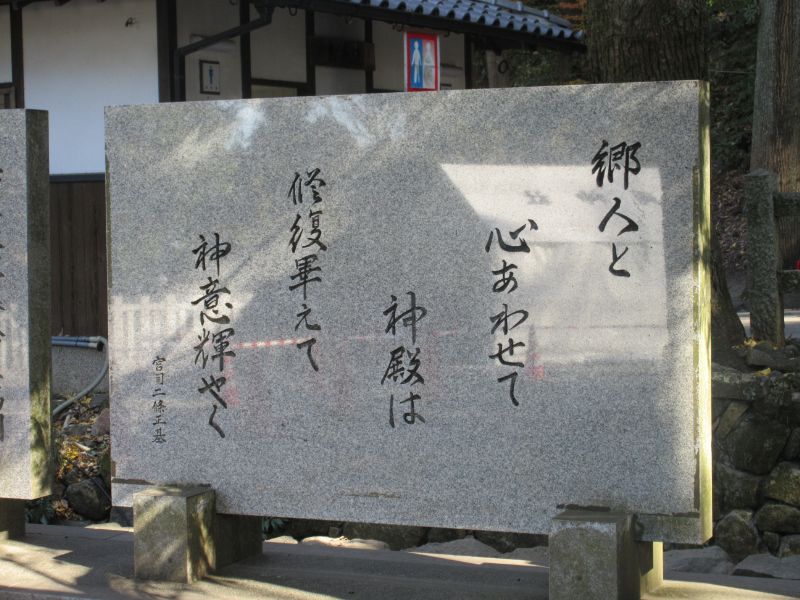 郷人と
心あわせて
神殿は
修復畢えて
神意輝やく
宮司二條正基